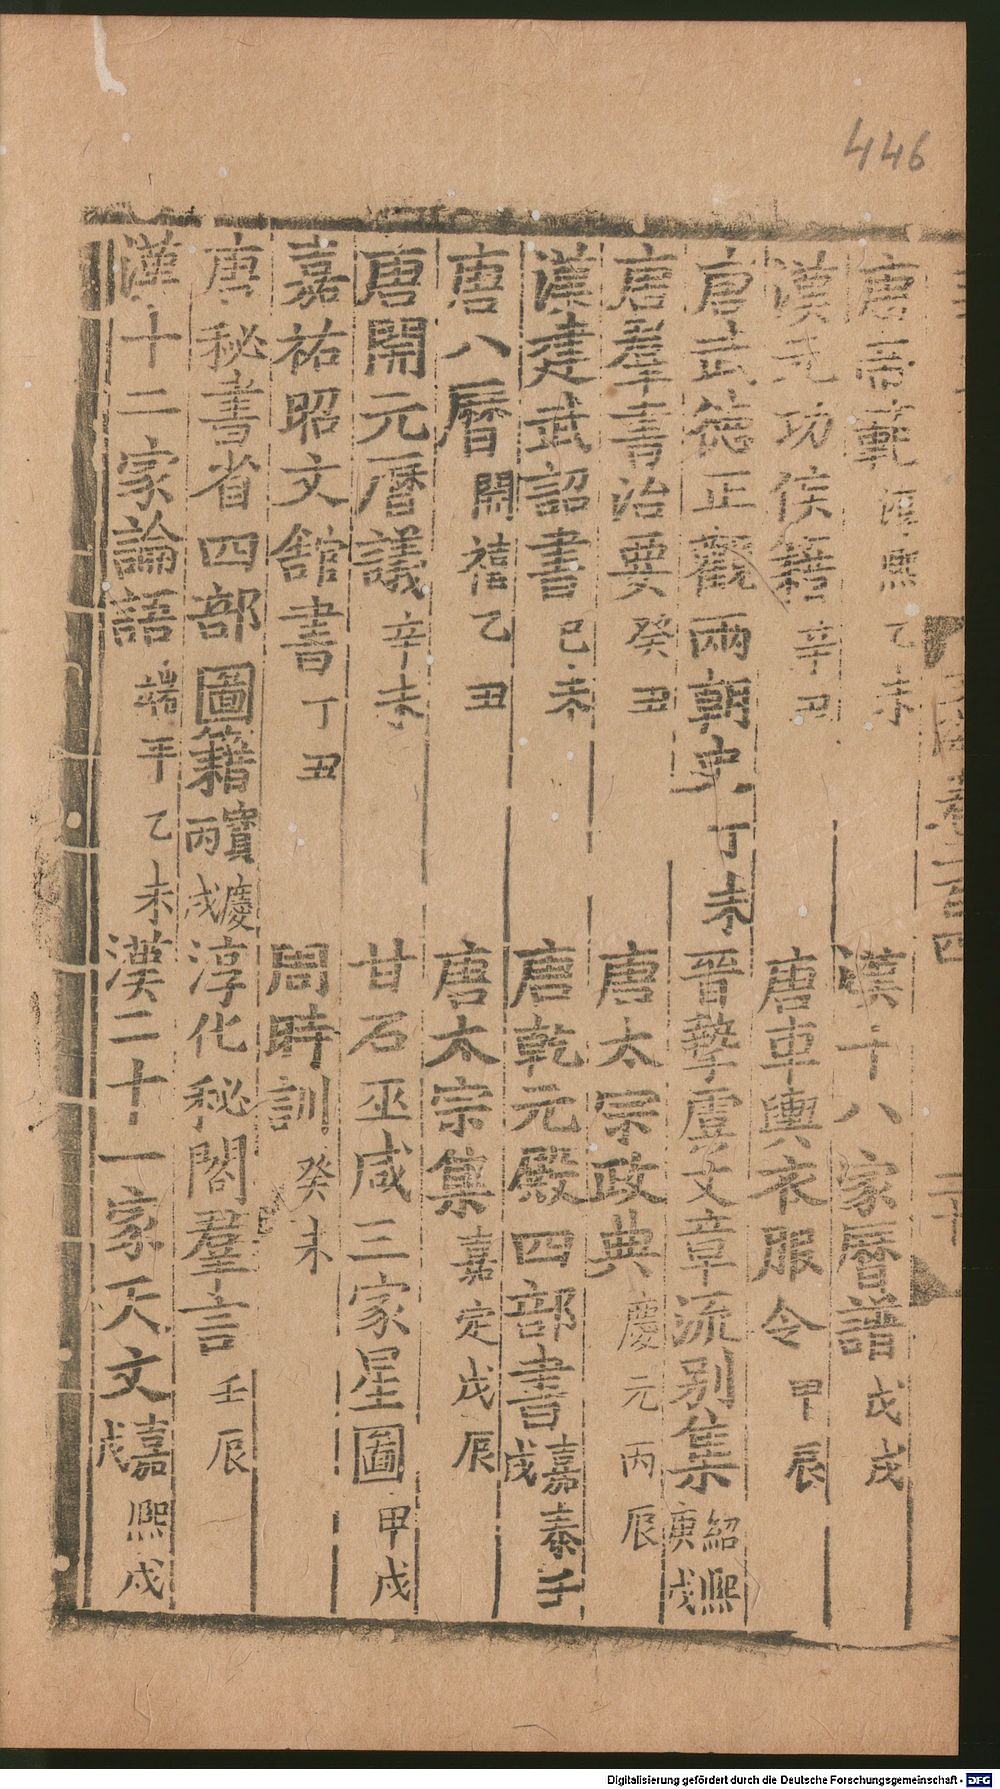 446
唐帝範淳熙乙未
漢十八家曆譜戊戌
漢元功侯籍辛丑
唐車輿衣服令甲辰
唐武德正觀兩朝史丁未
晉摯虞文章流别集紹熙庚戌
唐羣書治要癸丑
唐太宗政典慶元丙辰
漢建武詔書己未
唐乾元殿四部書嘉泰壬戌
唐八曆開禧乙丑
唐太宗集嘉定戊辰
唐開元曆議辛未
甘石巫咸三家星圖甲戌
嘉祐昭文舘書丁丑
周時訓癸未
唐秘書省四部圖籍寳慶丙戌
淳化秘閣羣言壬辰
漢十二家論語端平乙未
漢二十一家天文嘉熙戊戌
卷二百四
二十
Digitalisierung gefördert durch die Deutsche Forschungsgemeinschaft - DFG